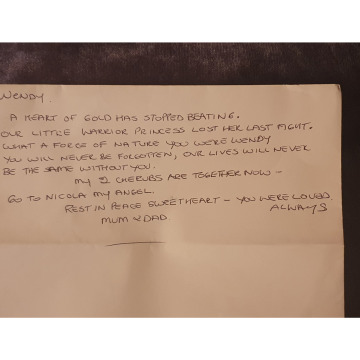 WENDY.
A HEART OF GOLD HAS STOPPED BEATING.
OUR LITTLE WARRIOR PRINCESS LOST HER LAST FIGHT.
WHAT A FORCE OF NATURE YOU WERE WENDY
YOU WILL NEVER BE FORGOTTEN, OUR LIVES WILL NEVER
BE THE SAME WITHOUT YOU.
MY 2 CHERUBS ARE TOGETHER NOW -
GO TO NICOLA MY ANGEL.
REST IN PEACE SWEETHEART - YOU WERE LOVED
ALWAYS
MUM & DAD